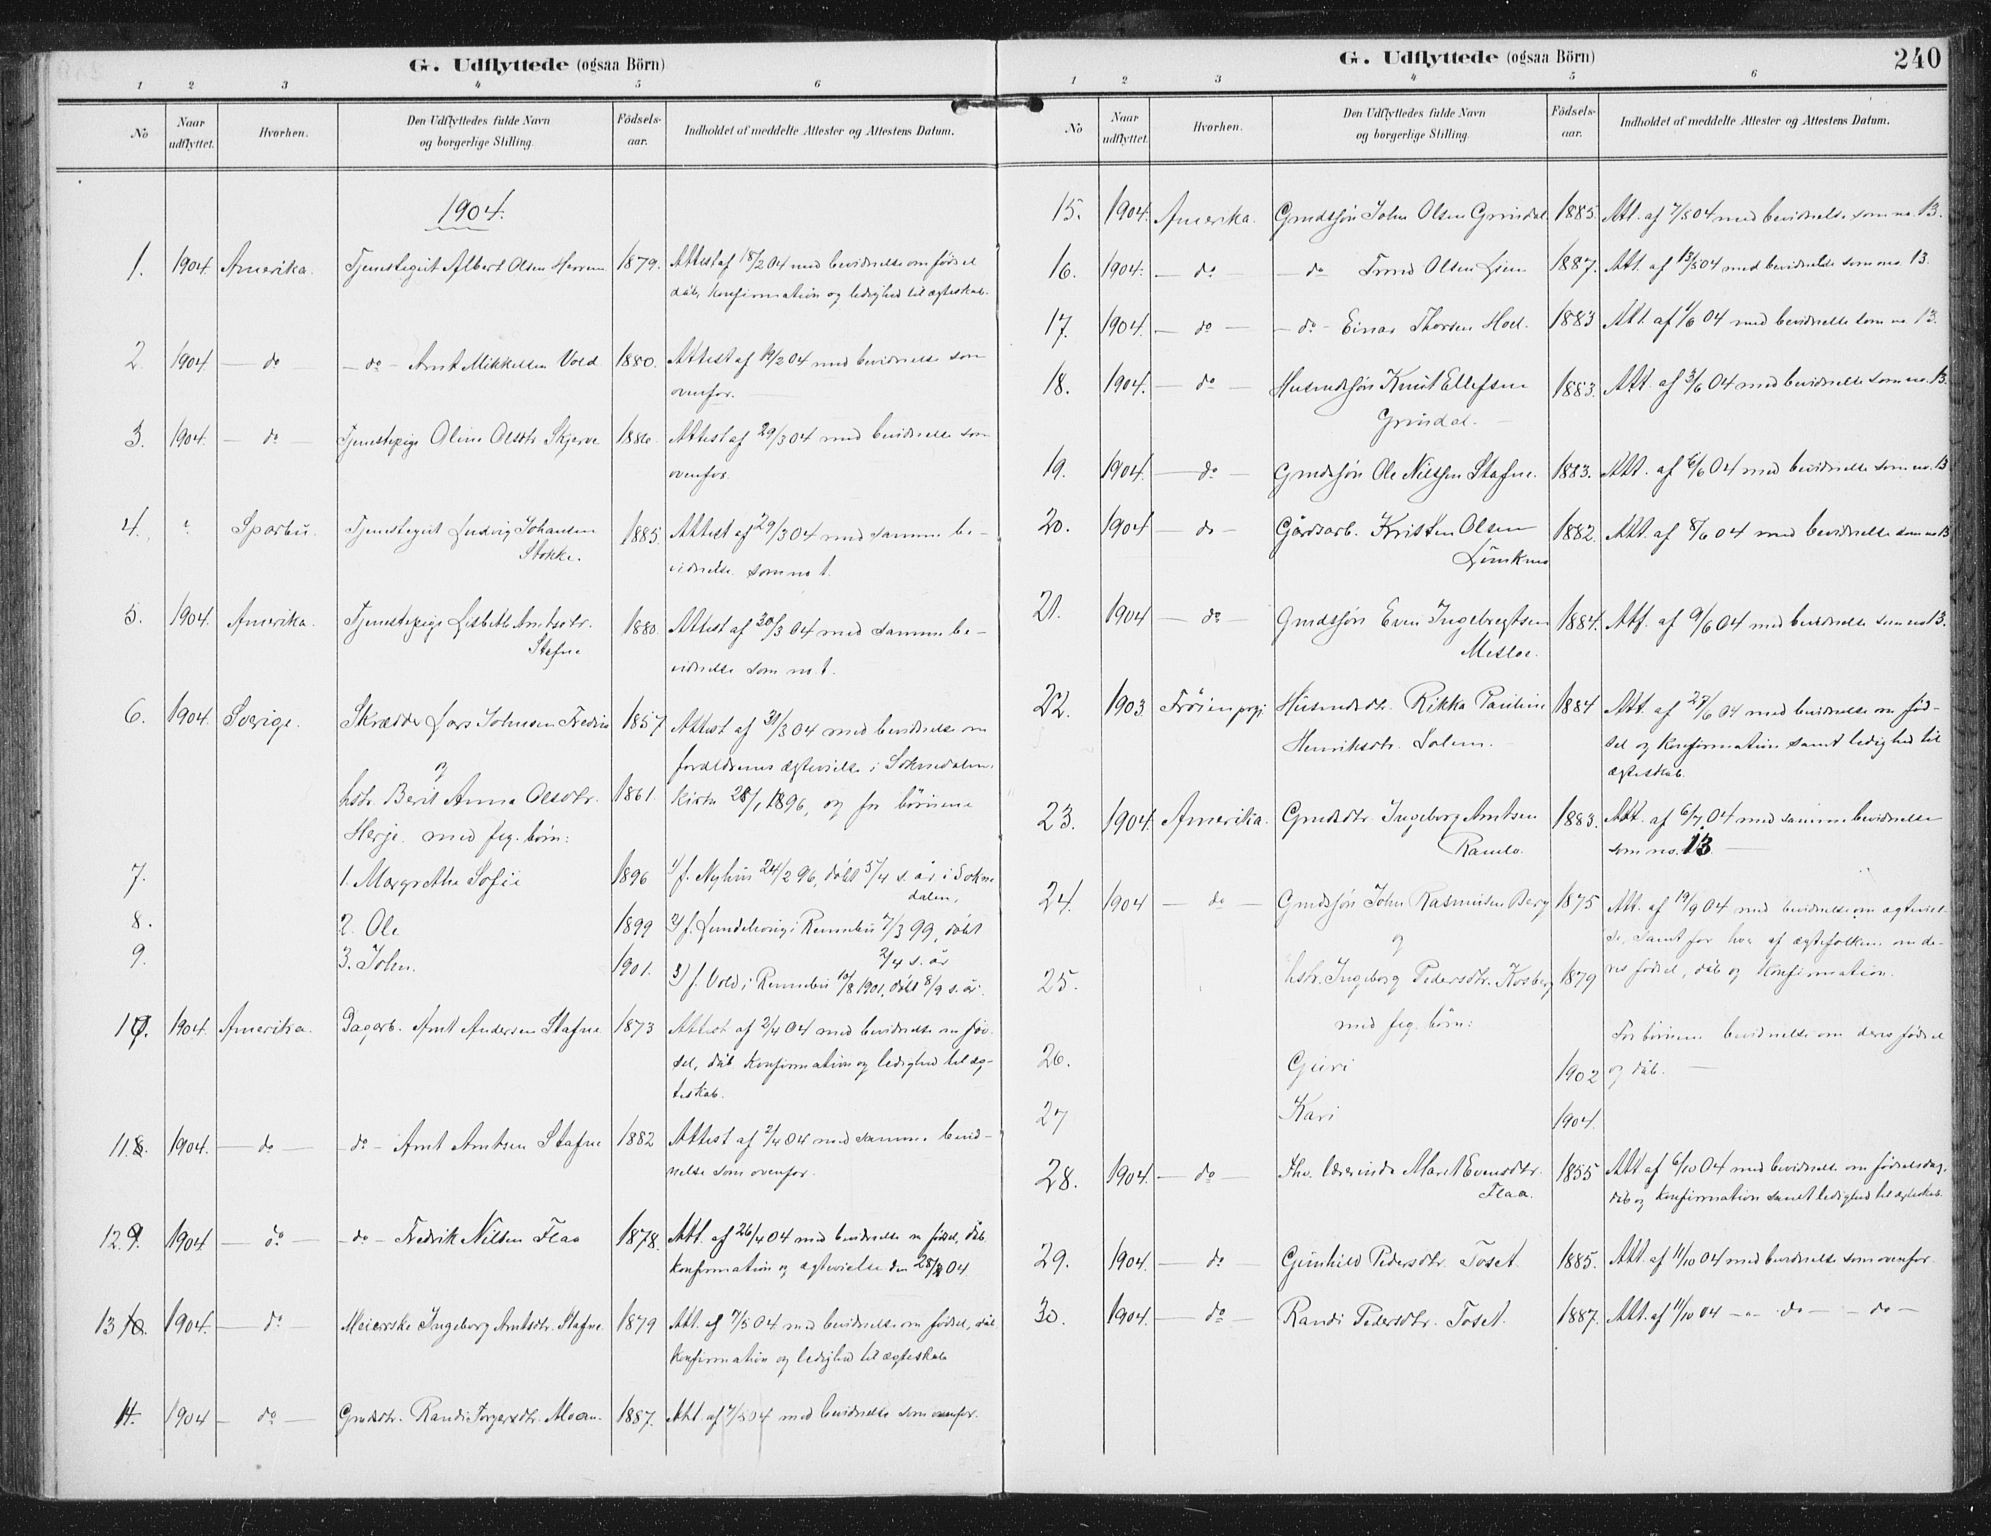 G. Udflyttede (ogsaa Börn)
1 2 3 4 5 6
No Naar udflyttet. Hvorhen. Den Udflyttedes fulde Navn og borgerlige Stilling. Födsels-aar. Indholdet af meddelte Attester og Attestens Datum.
1904.
1. 1904 Amerika. Tjenestegut Albert Olsen Herrem 1879. Attest af 18/2 04 med bevidnelse om fødsel
dåb, konfirmation og ledighed til ægteskab.
2. 1904 — do — do — Arnt Mikkelsen Vold 1880. Attest af 19/2 04 med bevidnelse som
ovenfor.
3. 1904. — do — Tjenestepige Oline Olsdtr. Skjerve 1886. Attest af 29/3 04 med bevidnelse som
ovenfor.
4. Sparbu. Tjenestegut Ludvig Johansen 1885. Attest af 29/3 04 med samme be-
Stokke. vidnelse som no 1.
5. 1904. Amerika. Tjenestepige Lisbeth Arntsdtr. 1880. Attest af 30/3 04 med samme be-
Stafne vidnelse som no 1.
6. 1904. Sverige. Skrædder Lars Johnsen 1857 Attest af 31/3 04 med bevidnelse om
og forældrenes ægtevielse i Soknedalens
hstr. Berit Anna Olsdtr. 1861 kirke 28/1 1896, og for børnene
Herje med flg. børn:
7. 1. Margrethe Sofie 1896 1) f. Nyhus 24/2 96, døbt 5/4 s. år i Sokne
dalen,
8. 2. Ole 1899 2) f. i Rennebu 7/3 99, døbt
2/4 s. år
9. 3. John. 1901. 3) f. Vold i Rennebu 10/8 1901, døbt 8/9 s. år.
10. 1904. Amerika. Dagarb. Arnt Andersen Stafne 1873 Attest af 2/4 04 med bevidnelse om fød-
sel, dåb konfirmation og ledighed til æg-
teskab.
11. 1904. — do — do — Arnt Arntsen Stafne 1882 Attest af 2/4 04 med samme bevid-
nelse som ovenfor.
12. 1904 — do — do — Fredrik Nilsen Flaa 1878. Att. af 26/4 04 med bevidnelse om fødsel, dåb
konfirmation og ægtevielse den 04.
13 1904. — do — Meierske Ingeborg Arntsdtr. Stafne 1879 Att. af 7/5 04 med bevidnelse om fødsel, dåb
konfirmation og ledighed til ægteskab
14. 1904 — do — Grmdtr. Randi Torgersdtr. Moan. 1887. Att. af 7/5 04 med bevidnelse som ovenfor.
G. Udflyttede (ogsaa Börn) 240
1 2 3 4 5 6
No Naar udflyttet. Hvorhen. Den Udflyttedes fulde Navn og borgerlige Stilling Födsels-aar. Indholdet af meddelte Attester og Attestens Datum.
15. 1904. Amerika. Grmdsjøn John Olsen Grindal 1885. Att. af 7/5 04 med bevidnelse som no. 13.
16. 1904. — do — do Trond Olsen Lien 1887. Att. af 13/5 04 med bevidnelse som no. 13.
17. 1904. — do — do — Einar Thorsen Hoel. 1883 Att. af 1/6 04 med bevidnelse som no 13.
18. 1904. — do — Husmdsjøn Knut Ellefsen 1883. Att. af 3/6 04 med bevidnelse som no. 13.
Grindal.
19. 1904. — do — Grmdsjøn Ole Nilssen Stafne. 1883. Att. af 6/6 04 med bevidnelse som no. 13
20. 1904 — do Gårdsarb. Kristen Olsen 1882. Att. af 8/6 04 med bevidnelse som no 13
21. 1904 — do — Grmdsjøn Even Ingebregtsen 1884. Att. af 9/6 04 med bevidnelse som no 13.
22. 1903. Husmdtr. Rikka Pauline 1884 Att. af 27/6 04 med bevidnelse om fød-
Henriksdtr. Solem. sel og konfirmation samt ledighed til
ægteskab.
23. 1904. Amerika. Grmdtr. Ingeborg Arntsen 1883. Att. af 6/7 04 med samme bevidnelse
Ramlo som no. 13 —
24. 1904 — do — Grmdsjøn John Rasmusen Berg 1875 Att. af 19/9 04 med bevidnelse om ægteviel-
og se, samt for hver af ægtefolkene om de-
25. hstr. Ingeborg Pedersdtr. Kosberg 1879 res fødsel, dåb og konfirmation.
med flg. børn:
For børnene bevidnelse om deres fødsel
26. Guri 1902 og dåb. —
27 Kari 1904.
28. 1904. — do — Fhv. lærerinde Marit Evensdtr. 1855 Att. af 6/10 04 med bevidnelse om fødselsdag,
Flaa. dåb og konfirmation samt ledighed til ægteskab.
29. 1904. — do — Gunhild Pedersdtr. Toset. 1885. Att. af 11/10 04 med bevidnelse som ovenfor.
30. 1904. — do — Randi Pedersdtr. Toset. 1887. Att. af 11/10 04 — do — do —